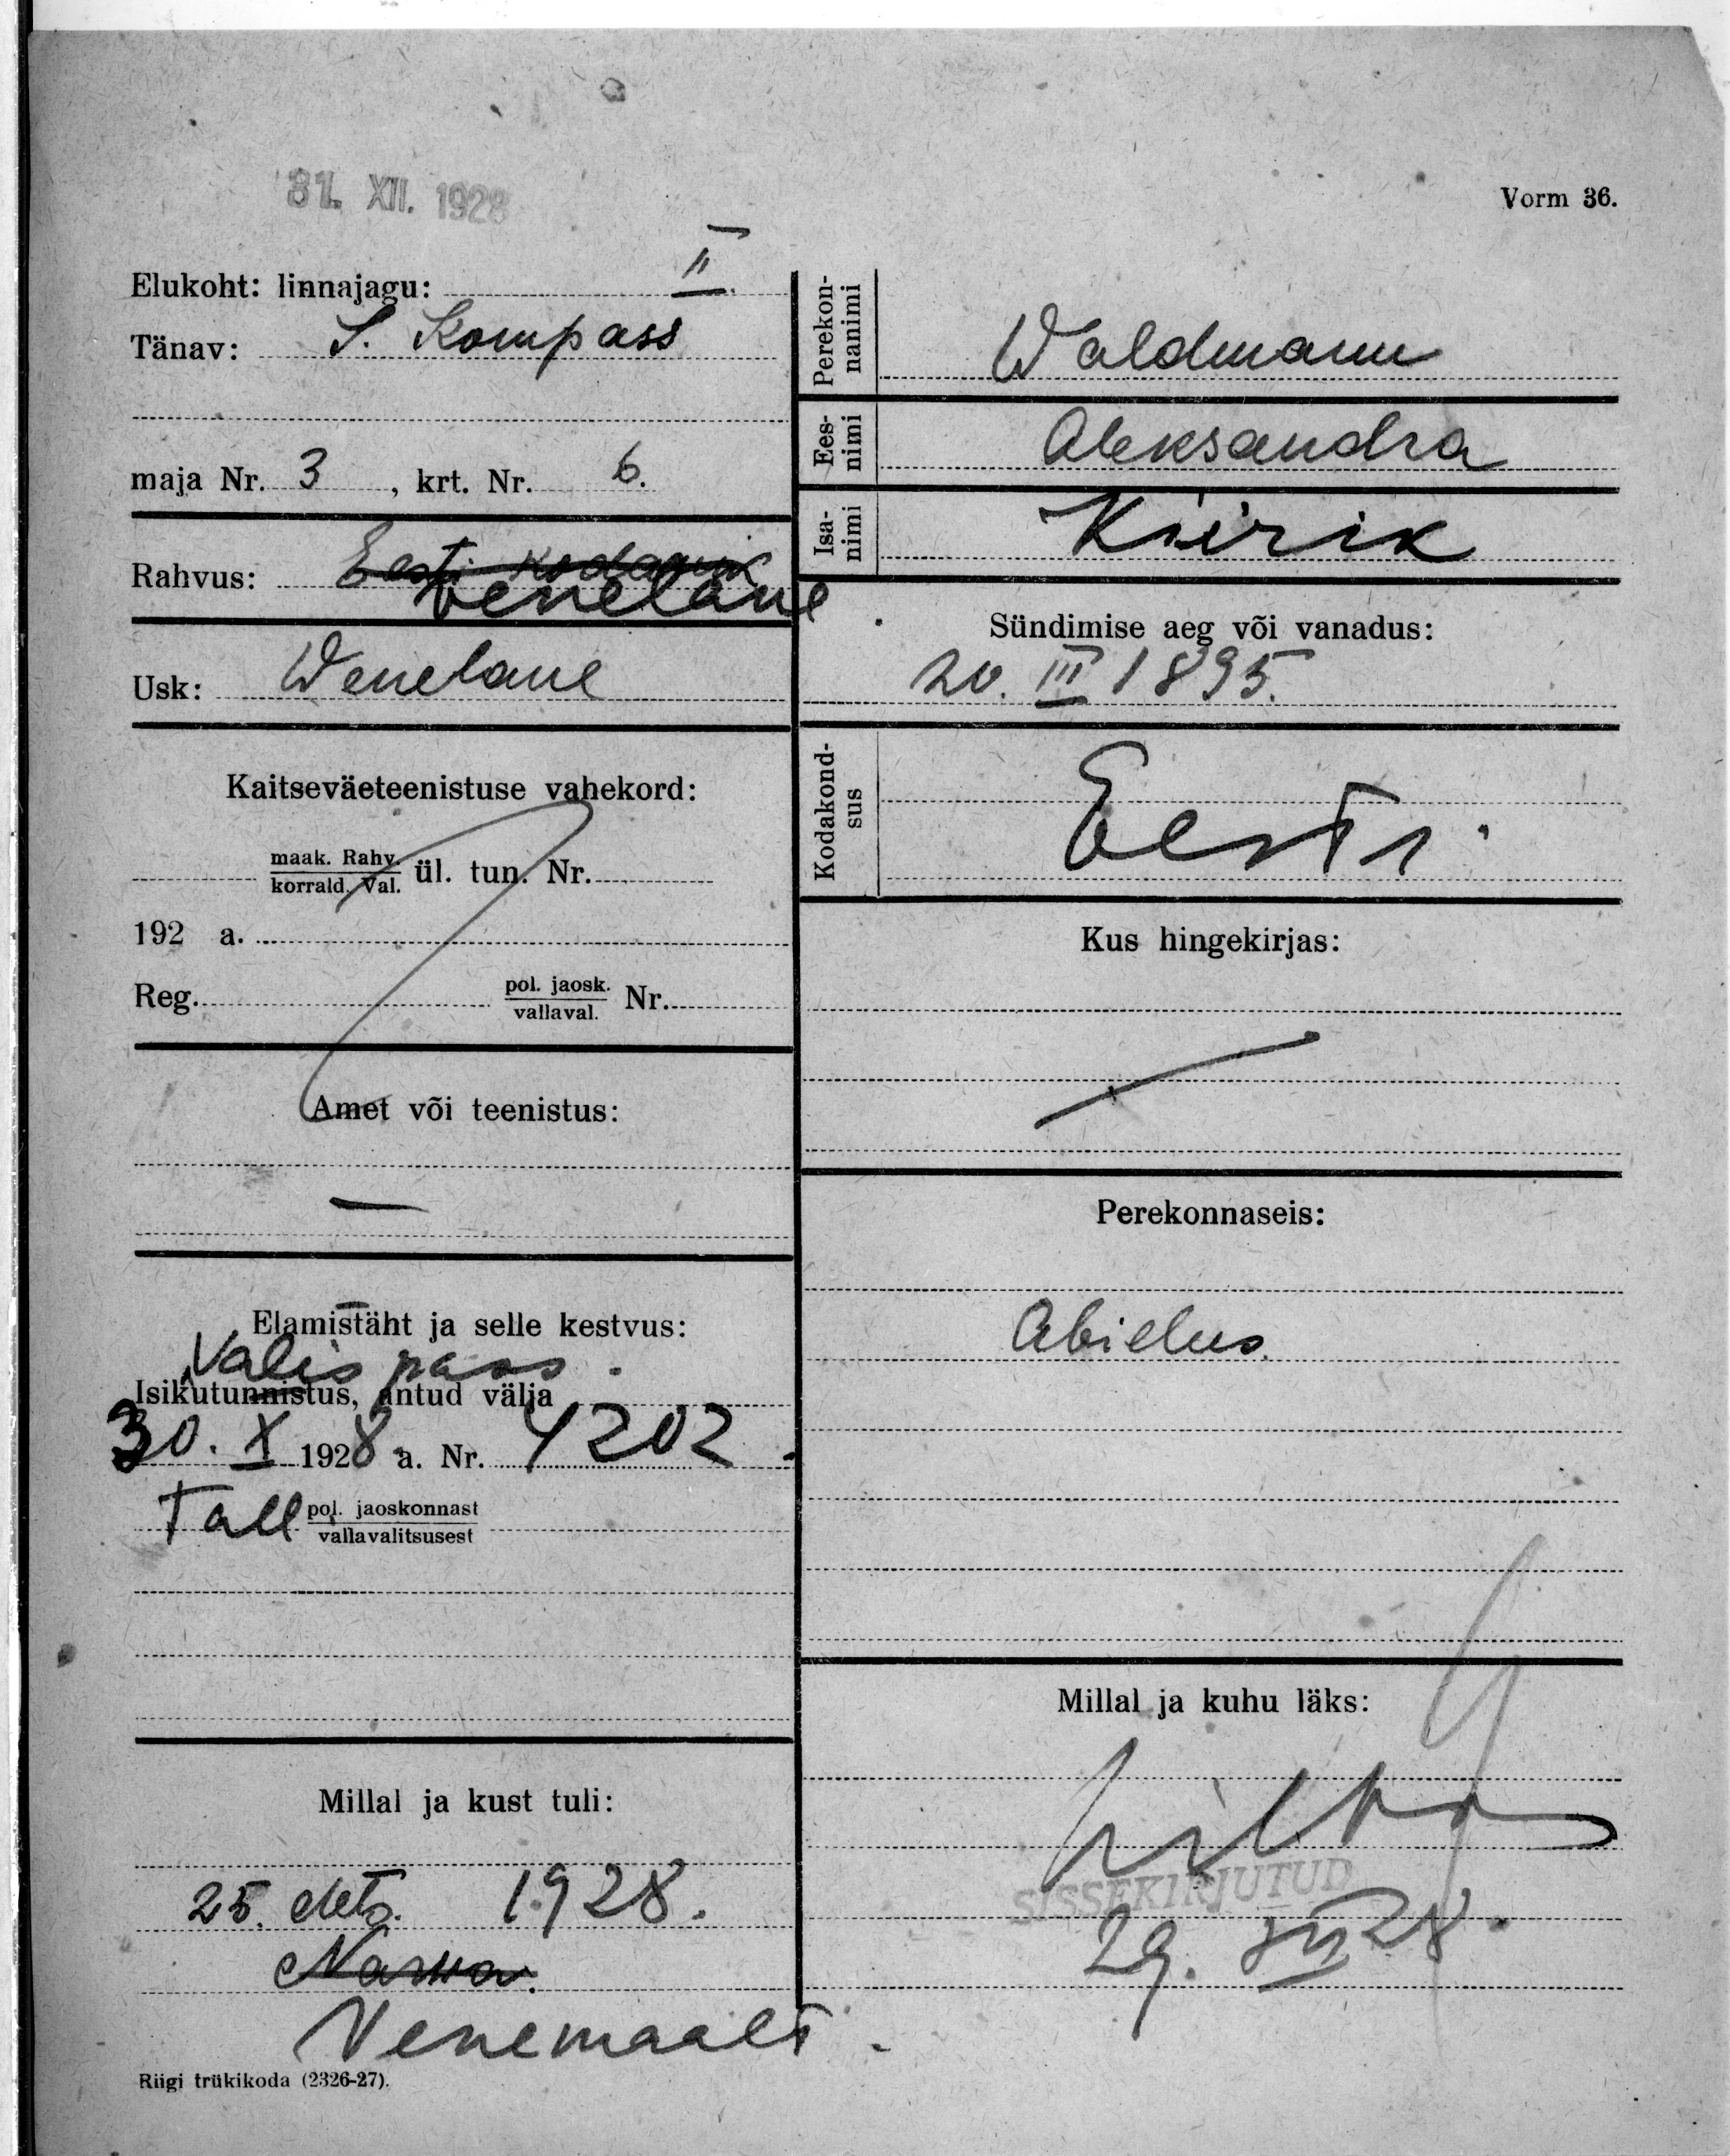 31. XII. 1928
Vorm 36.
Elukoht: linnajagu: II.
Tänav: S. Kompass
maja Nr. 3, krt. Nr. 6.
Rahvus: Eesti kodanik
venelane
Usk: Wenelane
Kaitseväeteenistuse vahekord:
maak. Rahv. korrald. Val. ül. tun. Nr.
192 a.
Reg. pol. jaosk. vallaval. Nr.
Amet või teenistus:
—
Elamistäht ja selle kestvus:
Valis pass.
Isikutunnistus, antud välja
30. X 1928 a. Nr. 4202.
Tall pol. jaoskonnast vallavalitsusest
Millal ja kust tuli:
25. dets. 1928.
Narva.
Venemaalt.
Riigi trükikoda (2326-27).
Perekonnanimi
Waldmann
Eesnimi
Aleksandra
Isanimi
Kiirik
Sündimise aeg või vanadus:
20. III 1895.
Kodakondsus
Eesti.
Kus hingekirjas:
Perekonnaseis:
Abielus.
Millal ja kuhu läks:
SISSEKIRJUTUD
29. XII 28.